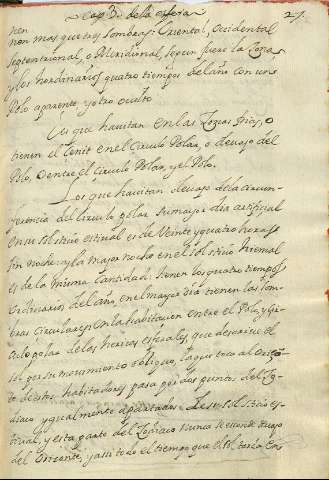 Cap 3. de la esfera 27.
nen no mas que tres sombras: Oriental, Occidental
septentrional, o Meridional, segun fuere la Zona
y los hordinarios quatro tiempos del año con uno
Polo aparente, y otro oculto
Los que havitan en las Zonas frias, o
tienen el Zenit en el Circulo Polar, o devajo del
Polo, o entre el Circulo Polar, y el Polo.
Los que havitan devajo de la circun-
ferencia del Circulo polar su maior dia artifical
en su solsticio estival es de Veinte y quatro horas
sin noche, y la maior noche en el solsticio hiemal
es de la misma cantidad: tienen los quatro tiempos
Ordinarios del año, en el mayor dia tienen las som-
bras Circulares, en la havitan entre el Polo, y Cir-
culo polar de los
que describe el
Sol por su movimiento obliquo, la que toca al Orizo
te de estos havitadores pasa por dos puntos del Zo-
diaco ygualmente apartados de su solsticio es-
tival, y esta parte del Zodiaco nunca se esconde devajo
del Orizonte, y asi todo el tiempo que el sol tarda en